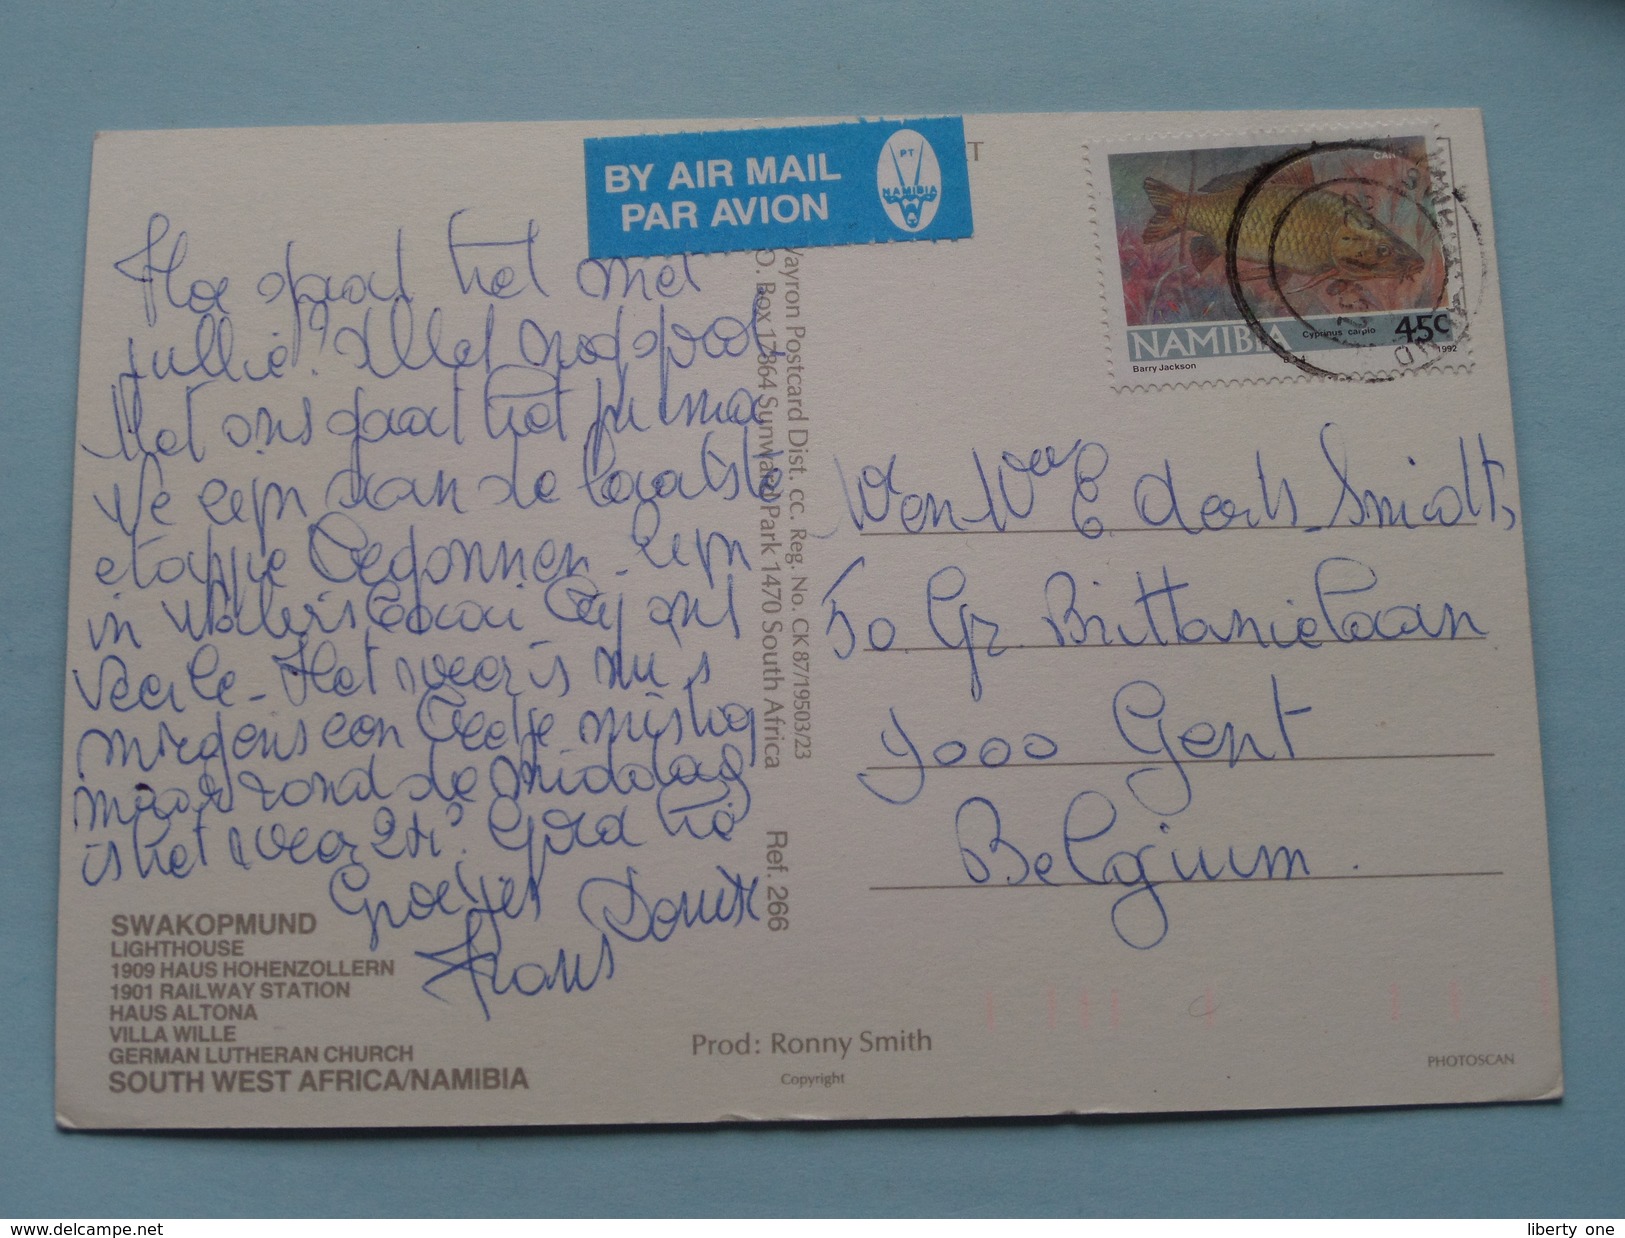 BY AIR MAIL
PAR AVION
PT
NAMIBIA
T
CAR
Cyprinus carpio
45c
NAMIBIA
1992
Barry Jackson
Hoe gaat het met
jullie? Alles nog goed
Met ons gaat het prima
We zijn aan de laatste
etappe begonnen. Zijn
in bij ons
Het weer is nu 's
morgens een beetje mistig
maar rond de middag
is het weer
Groetjes
Frans
M en Mevr E. Smidts
50 Gr. Brittanielaan
9000 Gent
Belgium.
ayron Postcard Dist. cc. Reg. No. CK 87/19503/23
O. Box 17864 Sunward Park 1470 South Africa
Ref. 266
SWAKOPMUND
LIGHTHOUSE
1909 HAUS HOHENZOLLERN
1901 RAILWAY STATION
HAUS ALTONA
VILLA WILLE
GERMAN LUTHERAN CHURCH
SOUTH WEST AFRICA/NAMIBIA
Prod: Ronny Smith
Copyright
PHOTOSCAN
www.delcampe.net
liberty one